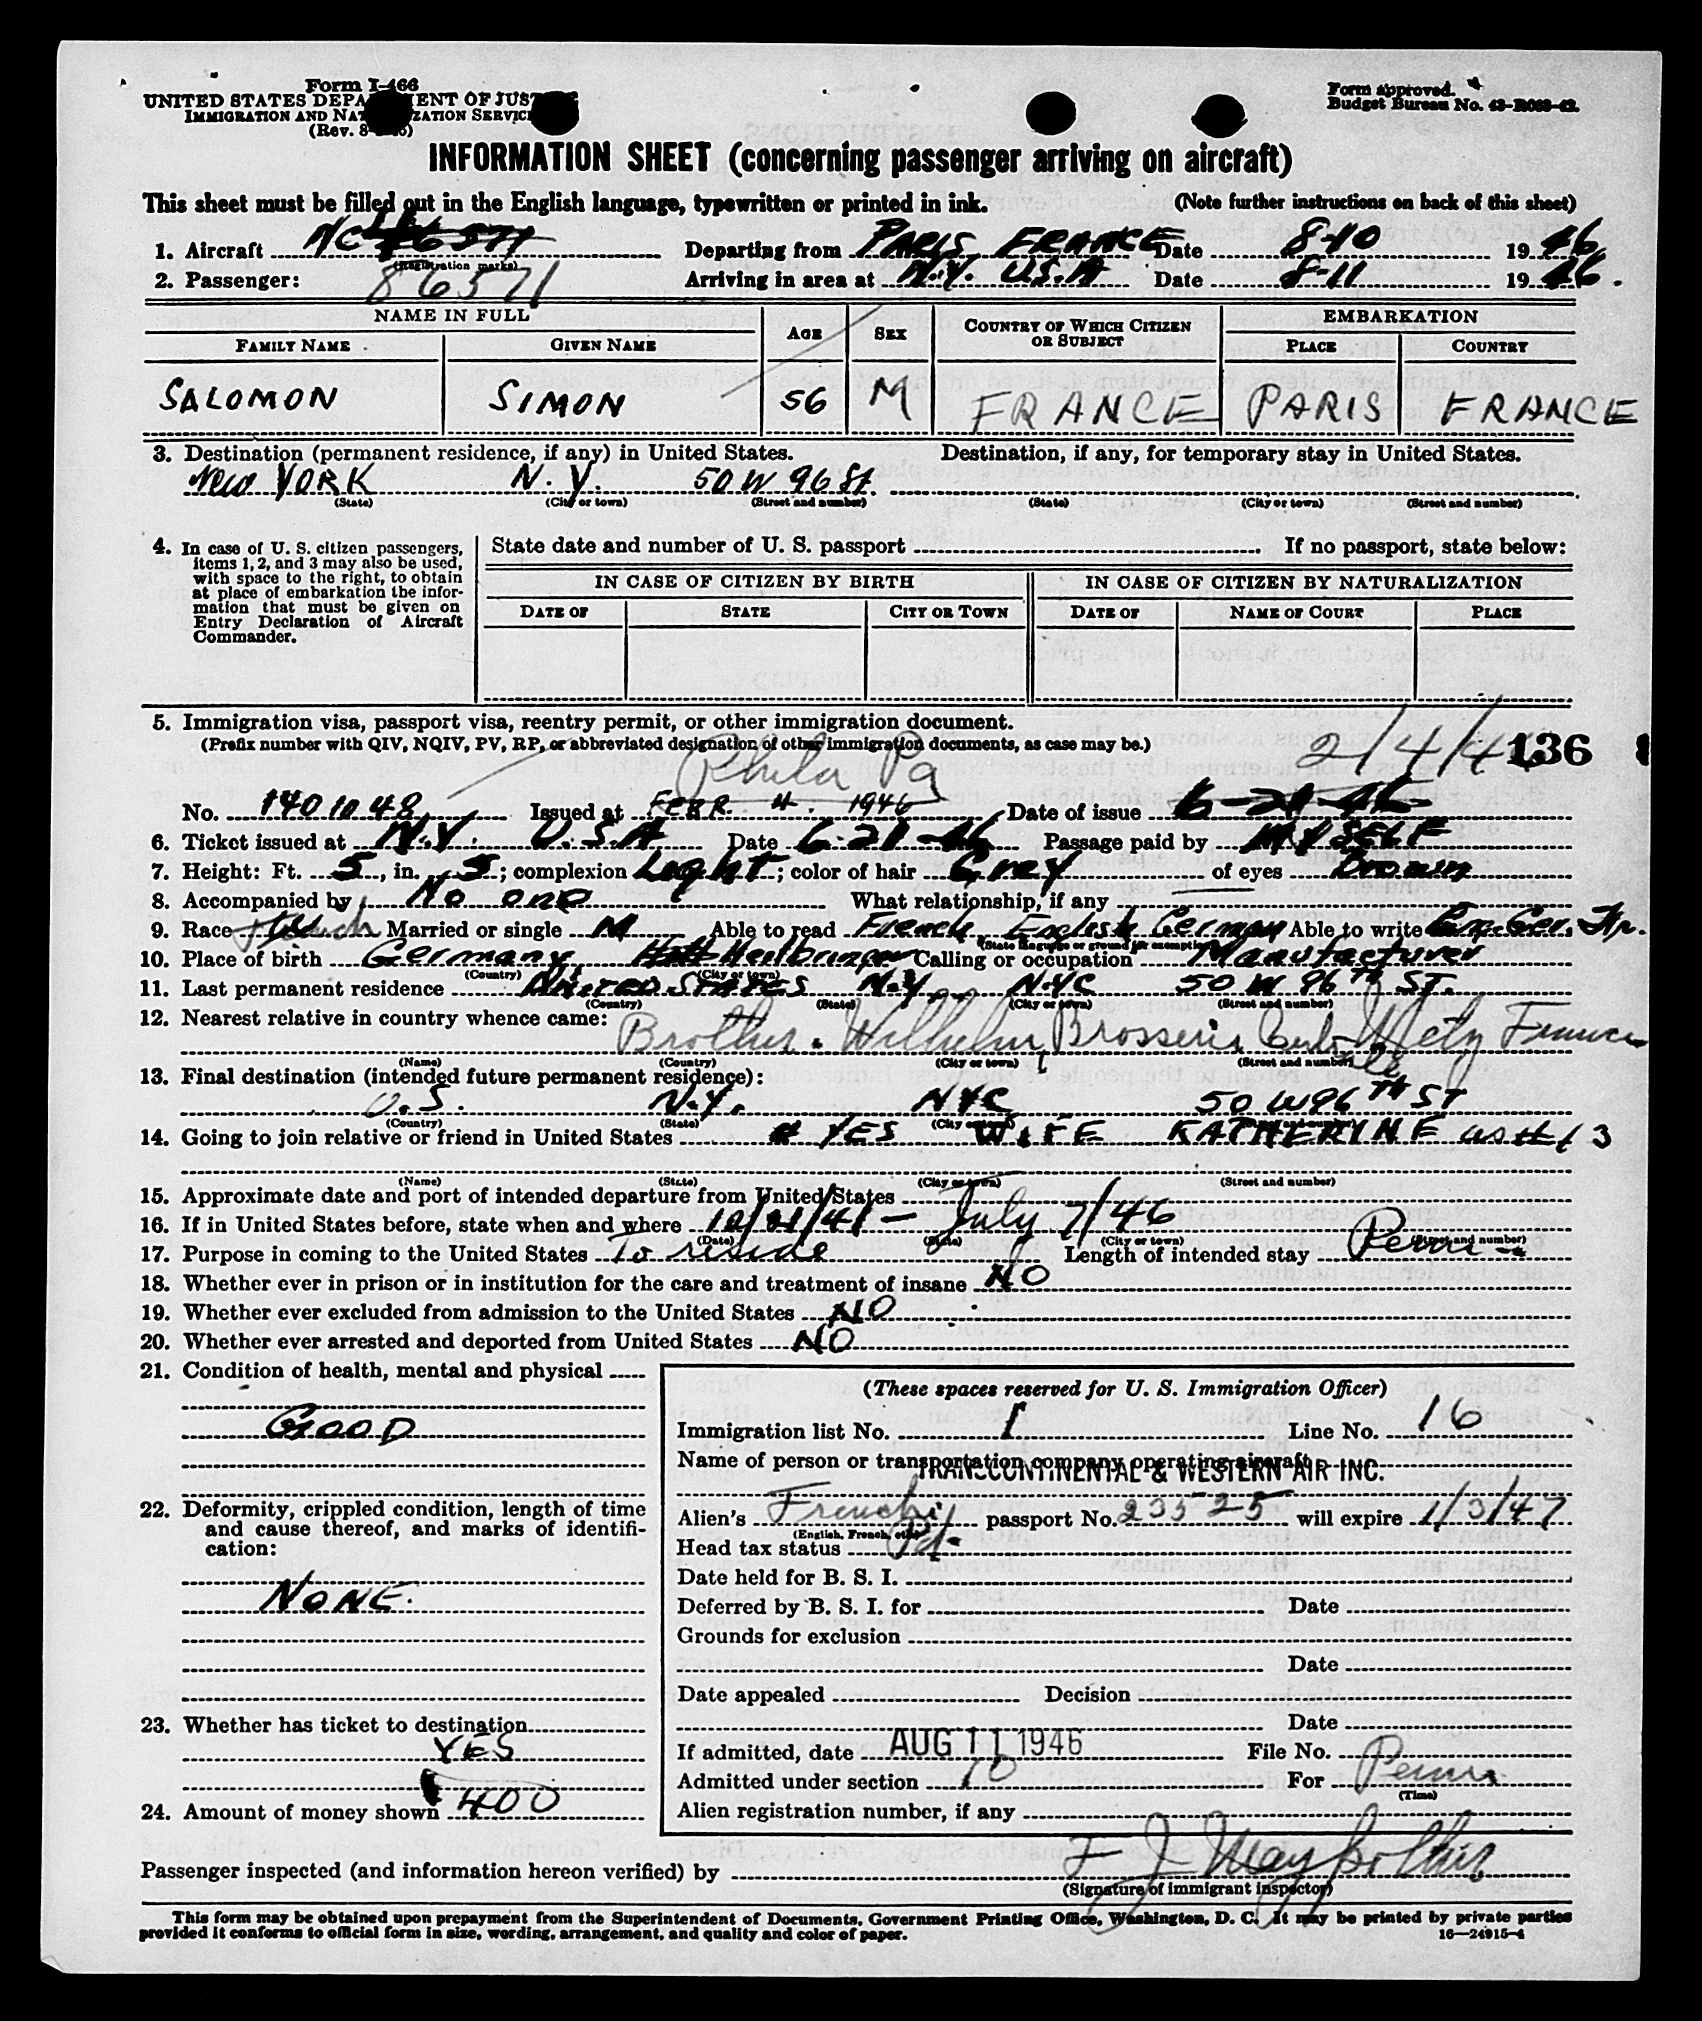 Form I-466
UNITED STATES DEPARTMENT OF JUSTICE
IMMIGRATION AND NATURALIZATION SERVICE
(Rev. 8-
Form approved.
Budget Bureau No. 43-R063-42.
INFORMATION SHEET (concerning passenger arriving on aircraft)
This sheet must be filled out in the English language, typewritten or printed in ink. (Note further instructions on back of this sheet)
1. Aircraft NC Departing from PARIS FRANCE Date 8-10 1946
(Registration marks)
2. Passenger: 86571 Arriving in area at N.Y. U.S.A Date 8-11 1946.
NAME IN FULL AGE SEX COUNTRY OF WHICH CITIZEN OR SUBJECT EMBARKATION
FAMILY NAME GIVEN NAME PLACE COUNTRY
SALOMON SIMON 56 M FRANCE PARIS FRANCE
3. Destination (permanent residence, if any) in United States. Destination, if any, for temporary stay in United States.
New YORK N.Y. 50 W 96 St.
(State) (City or town) (Street and number) (State) (City or town) (Street and number)
4. In case of U. S. citizen passengers,
items 1, 2, and 3 may also be used,
with space to the right, to obtain
at place of embarkation the infor-
mation that must be given on
Entry Declaration of Aircraft
Commander.
State date and number of U. S. passport If no passport, state below:
IN CASE OF CITIZEN BY BIRTH IN CASE OF CITIZEN BY NATURALIZATION
DATE OF STATE CITY OR TOWN DATE OF NAME OF COURT PLACE
5. Immigration visa, passport visa, reentry permit, or other immigration document.
(Prefix number with QIV, NQIV, PV, RP, or abbreviated designation of other immigration documents, as case may be.)
Phila Pa 2/4/46 136
No. 1401048 Issued at FEBR. 4. 1946 Date of issue 6-21-46
6. Ticket issued at N.Y. U.S.A Date 6-21-46 Passage paid by MYSELF
7. Height: Ft. 5, in. 5; complexion Light; color of hair Grey of eyes Brown
8. Accompanied by No one What relationship, if any
9. Race French Married or single M Able to read French English German Able to write Eng. Ger. Fr.
(State language or ground for exemption)
10. Place of birth Germany Calling or occupation Manufacturer
(Country) (City or town)
11. Last permanent residence United STATES N.Y. NYC 50 W 96TH ST.
(Country) (State) (City or town) (Street and number)
12. Nearest relative in country whence came:
Brother. Wilhelm Brosserie Metz France
(Name) (Country) (City or town) (Street and number)
13. Final destination (intended future permanent residence):
U.S. N.Y. NYC 50 W 96TH ST
(Country) (State) (City or town)
14. Going to join relative or friend in United States YES WIFE KATHERINE as #13
(Name) (State) (City or town) (Street and number)
15. Approximate date and port of intended departure from United States
16. If in United States before, state when and where 10/21/41 - July 7/46
(Date) (State) (City or town) (Street and number)
17. Purpose in coming to the United States To reside Length of intended stay Perm.
18. Whether ever in prison or in institution for the care and treatment of insane NO
19. Whether ever excluded from admission to the United States NO
20. Whether ever arrested and deported from United States NO
21. Condition of health, mental and physical
GOOD
22. Deformity, crippled condition, length of time
and cause thereof, and marks of identifi-
cation:
NONE.
23. Whether has ticket to destination
YES
24. Amount of money shown 400
(These spaces reserved for U. S. Immigration Officer)
Immigration list No. 1 Line No. 16
Name of person or transportation company operating aircraft
TRANSCONTINENTAL & WESTERN AIR INC.
Alien's French passport No. 23525 will expire 1/3/47
(English, French, etc.)
Head tax status Pd.
Date held for B. S. I.
Deferred by B. S. I. for Date
Grounds for exclusion
Date
Date appealed Decision
Date
If admitted, date AUG 11 1946 File No.
Admitted under section 10 For Perm.
(Time)
Alien registration number, if any
Passenger inspected (and information hereon verified) by
(Signature of immigrant inspector)
This form may be obtained upon prepayment from the Superintendent of Documents, Government Printing Office, Washington, D. C. It may be printed by private parties
provided it conforms to official form in size, wording, arrangement, and quality and color of paper.
16—24915-4